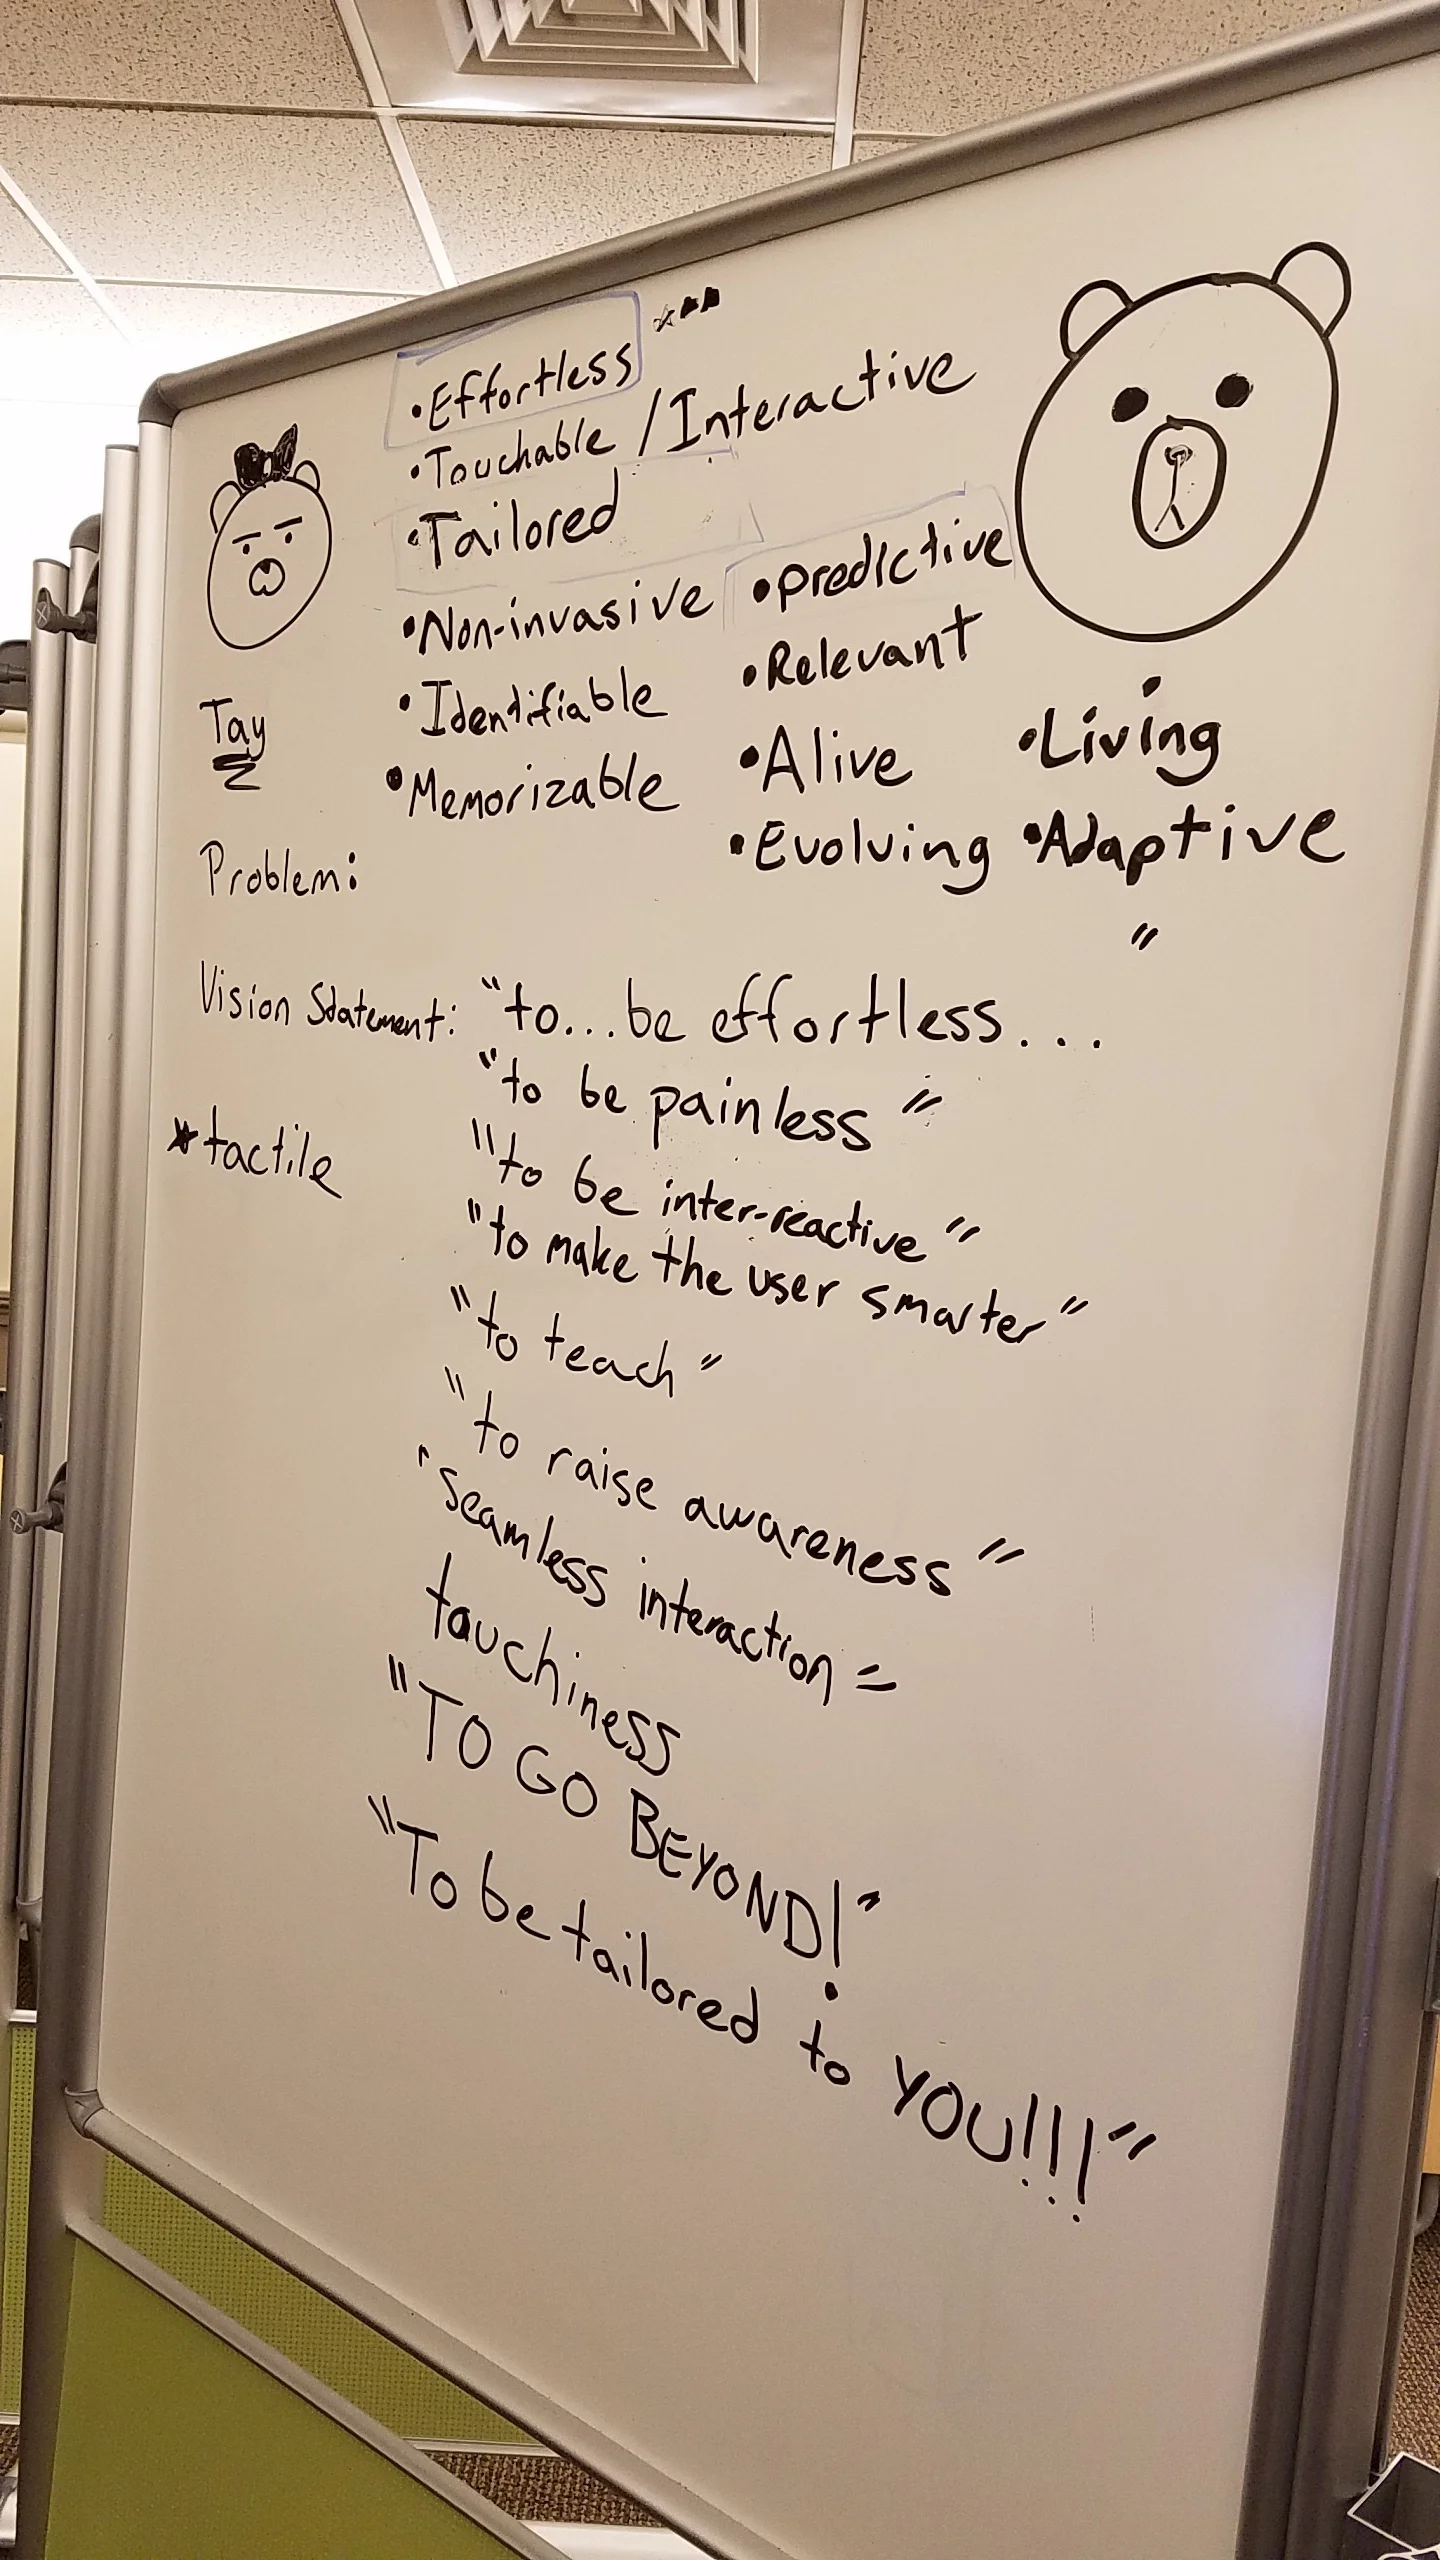 •Effortless
•Touchable /Interactive
•Tailored
•Non-invasive •predictive
•Identifiable •Relevant
•Memorizable •Alive •Living
•Evolving •Adaptive
Tay
Problem:
Vision Statement: "to...be effortless... "
"to be painless"
*tactile
"to be inter-reactive"
"to make the user smarter"
"to teach"
"to raise awareness"
'Seamless interaction =
tauchiness
"TO GO BEYOND!"
"To be tailored to YOU!!!"